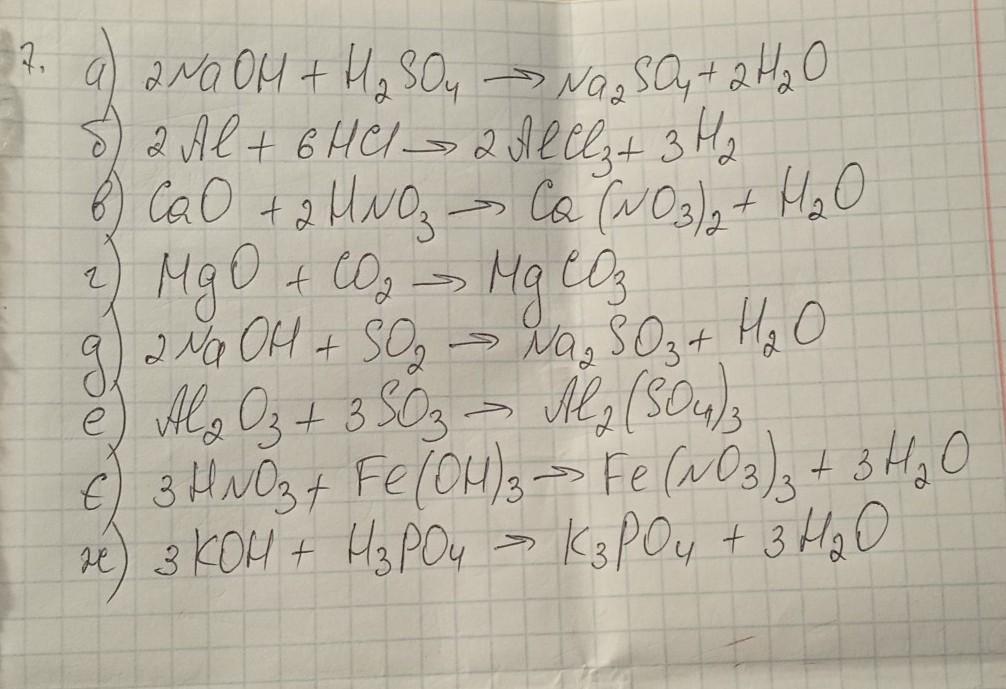 7. а) 2NaOH + H₂SO₄ → Na₂SO₄ + 2H₂O
б) 2Al + 6HCl → 2AlCl₃ + 3H₂
в) CaO + 2HNO₃ → Ca(NO₃)₂ + H₂O
г) MgO + CO₂ → MgCO₃
д) 2NaOH + SO₂ → Na₂SO₃ + H₂O
е) Al₂O₃ + 3SO₃ → Al₂(SO₄)₃
є) 3HNO₃ + Fe(OH)₃ → Fe(NO₃)₃ + 3H₂O
ж) 3KOH + H₃PO₄ → K₃PO₄ + 3H₂O